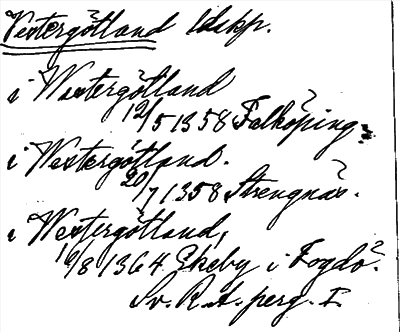 Vestergötland ldskp.
i Westergötland
12/5 1358 Falköping
i Westergötland.
20/7 1358 Strengnäs.
i Westergötland,
10/8 1364 Ekeby i Fogdö.
Sv. R. A. perg. I.